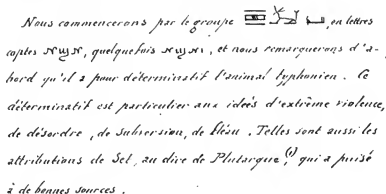 Nous commencerons par le groupe , en lettres
coptes ⲚⲰϢⲚ, quelquefois ⲚⲰϢⲚⲒ, et nous remarquerons d'a-
bord qu'il a pour déterminatif l'animal typhonien. Ce
déterminatif est particulier aux idées d'extrême violence,
de désordre, de subversion, de fléau. Telles sont aussi les
attributions de Set, au dire de Plutarque (1), qui a puisé
à de bonnes sources.